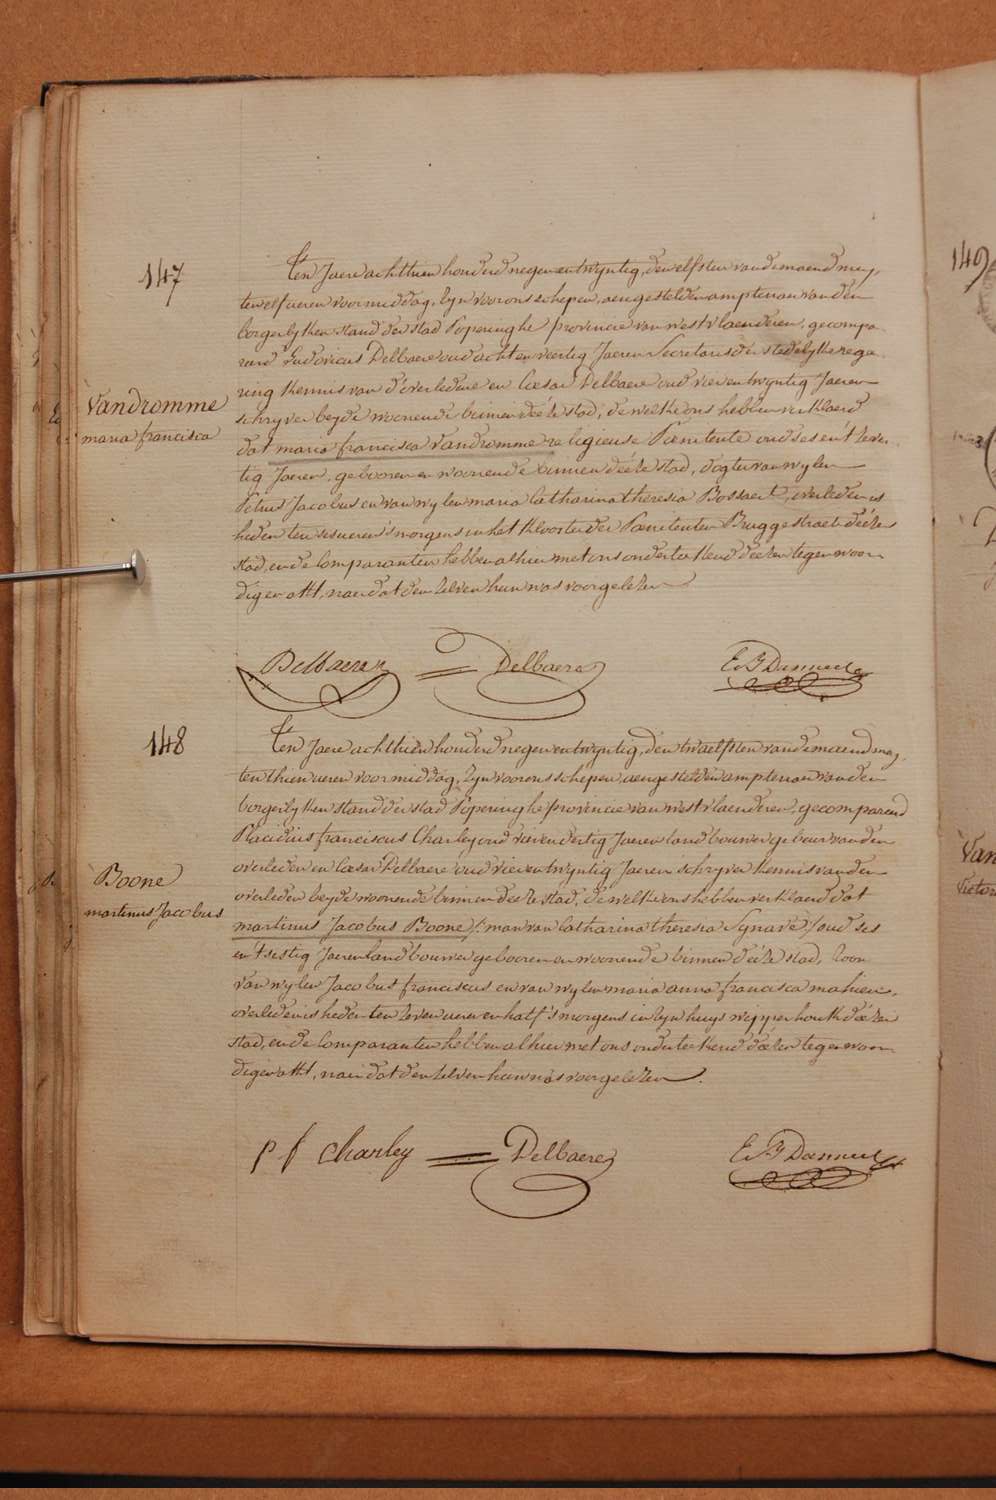 147
Ten Jaere achthien honderd negen en twyntig, den elfsten van de maend mey,
ten elf ueren voormiddag, zyn voor ons schepen, aengestelden amptenaer van den
borgerlyken stand der stad Poperinghe provincie van westvlaenderen, gecompa-
reerd Ludovicus Delbaere oud acht en veertig Jaeren Secretaris der stedelyke rege-
ring kennis van d'overledene en Cæsar Delbaere oud vier en twyntig Jaeren
schryver beyde woonende binnen deéze stad, de welke ons hebben verklaerd
Vandromme
maria francisca
dat maria francisca vandromme religieuse Pœnitente oud ses en't zeven-
tig Jaeren, gebooren en woonende binnen deéze stad, dogter van wylen
Petrus Jacobus en van wylen maria Catharina theresia Bossaert, overleden is
heden ten ses ueren 's morgens in het klooster der Pœnitenten Bruggestraet deéze
stad, en de Comparanten hebben alhier met ons onderteekend deézen tegenwoor-
digen akt, naer dat den zelven hun was voorgelezen
Delbaere Delbaere
148
Ten Jaere achthien honderd negen en twyntig, den twaelfsten van de maend mey,
ten thien ueren voormiddag, zyn voor ons schepen aengestelden amptenaer van den
borgerlyken stand der stad Poperinghe provincie van westvlaenderen, gecompareerd
Placidus franciscus Charley oud vier en dertig Jaeren landbouwer gebeur van den
overleden en Cæsar Delbaere oud vier en twyntig Jaeren schryver kennis van den
Boone
martinus Jacobus
overleden beyde woonende binnen deeze stad, de welke ons hebben verklaerd dat
martinus Jacobus Boone /: man van Catharina theresia Synave :/ oud ses
en't sestig Jaeren landbouwer gebooren en woonende binnen deéze stad, Zoon
van wylen Jacobus franciscus en van wylen maria anna francisca mahieu,
overleden is heden ten zeven ueren en half 's morgens in zyn huys wipperhoutk deézer
stad, en de Comparanten hebben alhier met ons onderteekend deézen tegenwoor-
digen akt, naer dat den zelven hun was voorgelezen.
p f Charley Delbaere
149
Van
Victor